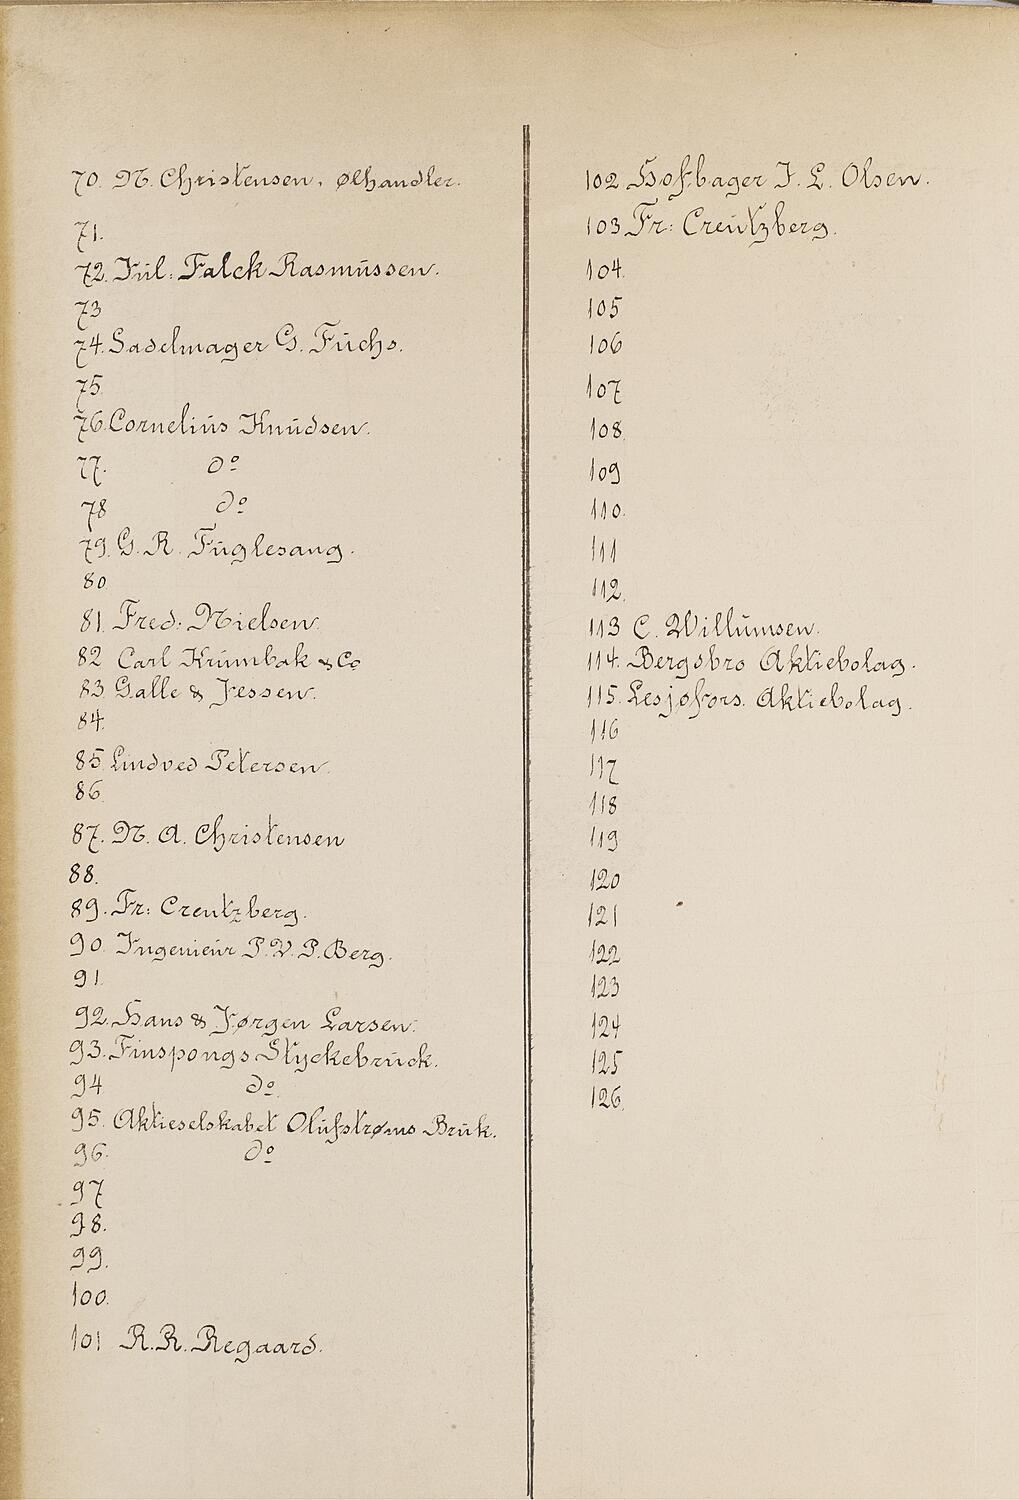 70. N. Christensen, Ølhandler.
71.
72. Jul: Falck Rasmussen.
73
74. Sadelmager G. Fuchs.
75.
76. Cornelius Knudsen.
77. do
78 do
79. G. R. Fuglesang.
80.
81. Fred: Nielsen.
82 Carl Krumbak & Co
83 Galle & Jessen.
84.
85. Lindved Petersen.
86.
87. N. A. Christensen
88.
89. Fr: Creutzberg.
90. Ingenieur P. V. P. Berg.
91.
92. Hans & Jørgen Larsen.
93. Finspongs Styckebruck.
94 do
95. Aktieselskabet Olufstrøms Bruk.
96. do
97
98.
99.
100.
101 R. R. Regaard.
102 Hofbager J. L. Olsen.
103 Fr: Creutzberg.
104.
105
106
107
108.
109
110.
111
112.
113 C. Willumsen.
114. Bergsbro Aktiebolag.
115. Lesjøfors. Aktiebolag.
116
117
118
119
120
121
122
123
124
125
126.